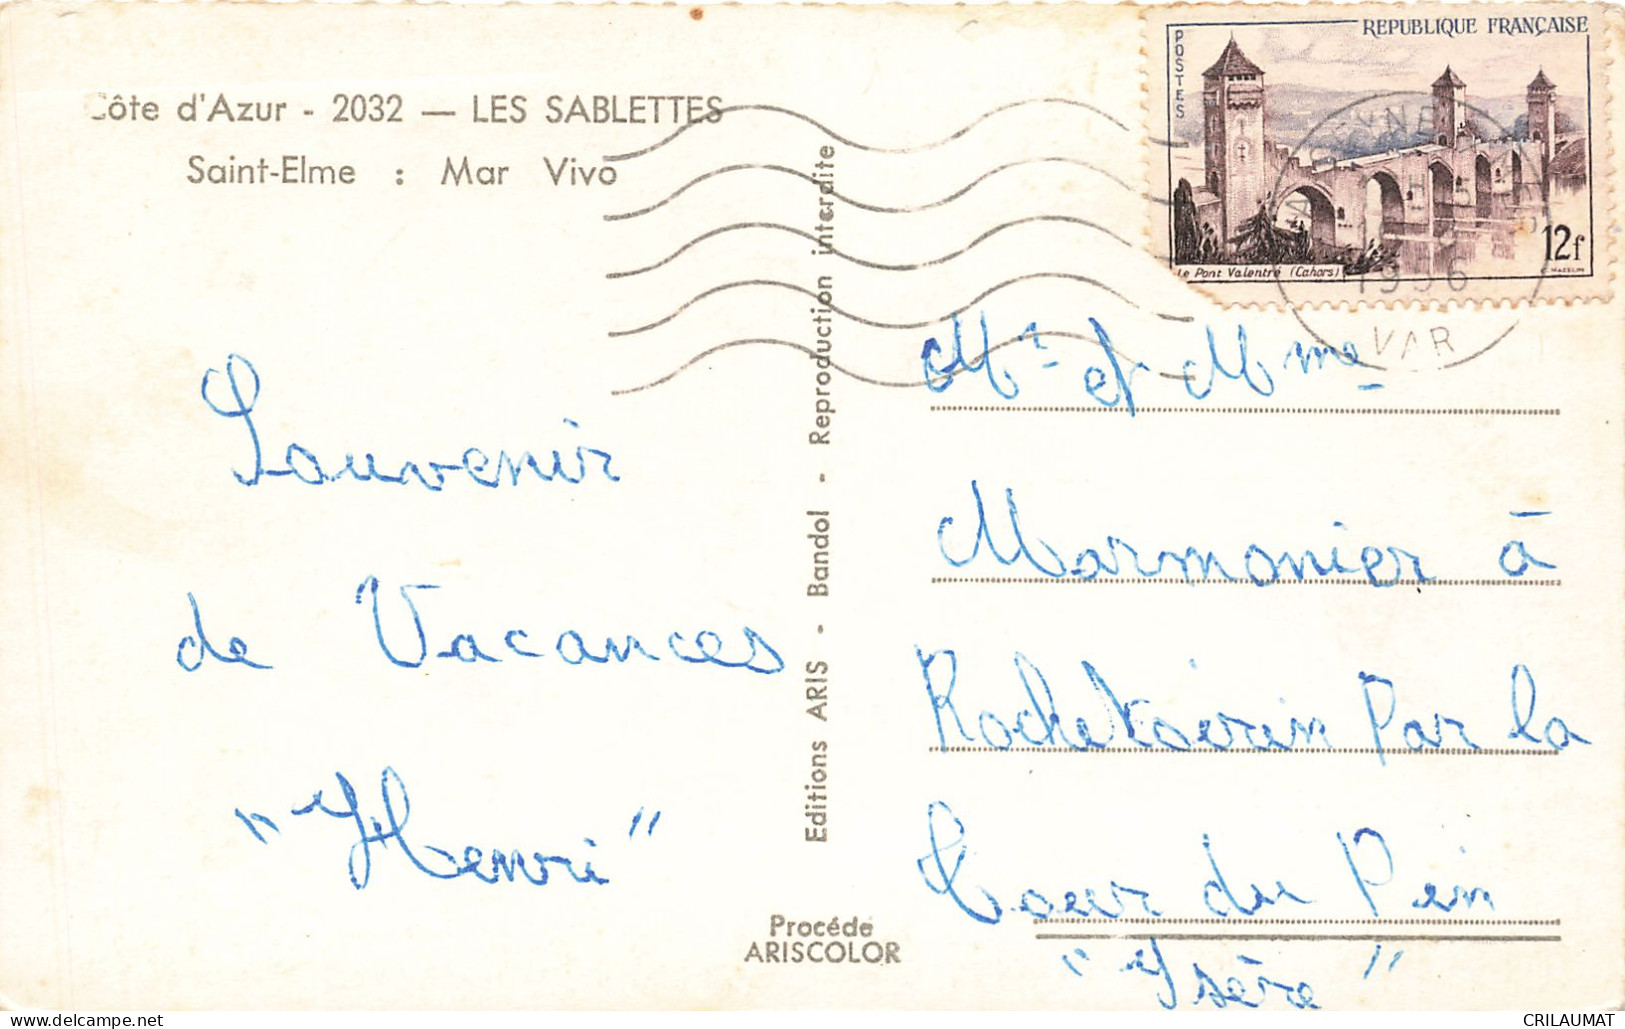 Côte d'Azur - 2032 — LES SABLETTES
Saint-Elme : Mar Vivo
REPUBLIQUE FRANÇAISE
POSTES
12f
Le Pont Valentré (Cahors)
MAZELIN
1956
VAR
Souvenir
de Vacances
"Henri"
Editions ARIS - Bandol - Reproduction interdite
Procédé
ARISCOLOR
Mr et Mme
Marmonier à
Rochetoirin Par la
Tour du Pin
"Isère"
CRILAUMAT